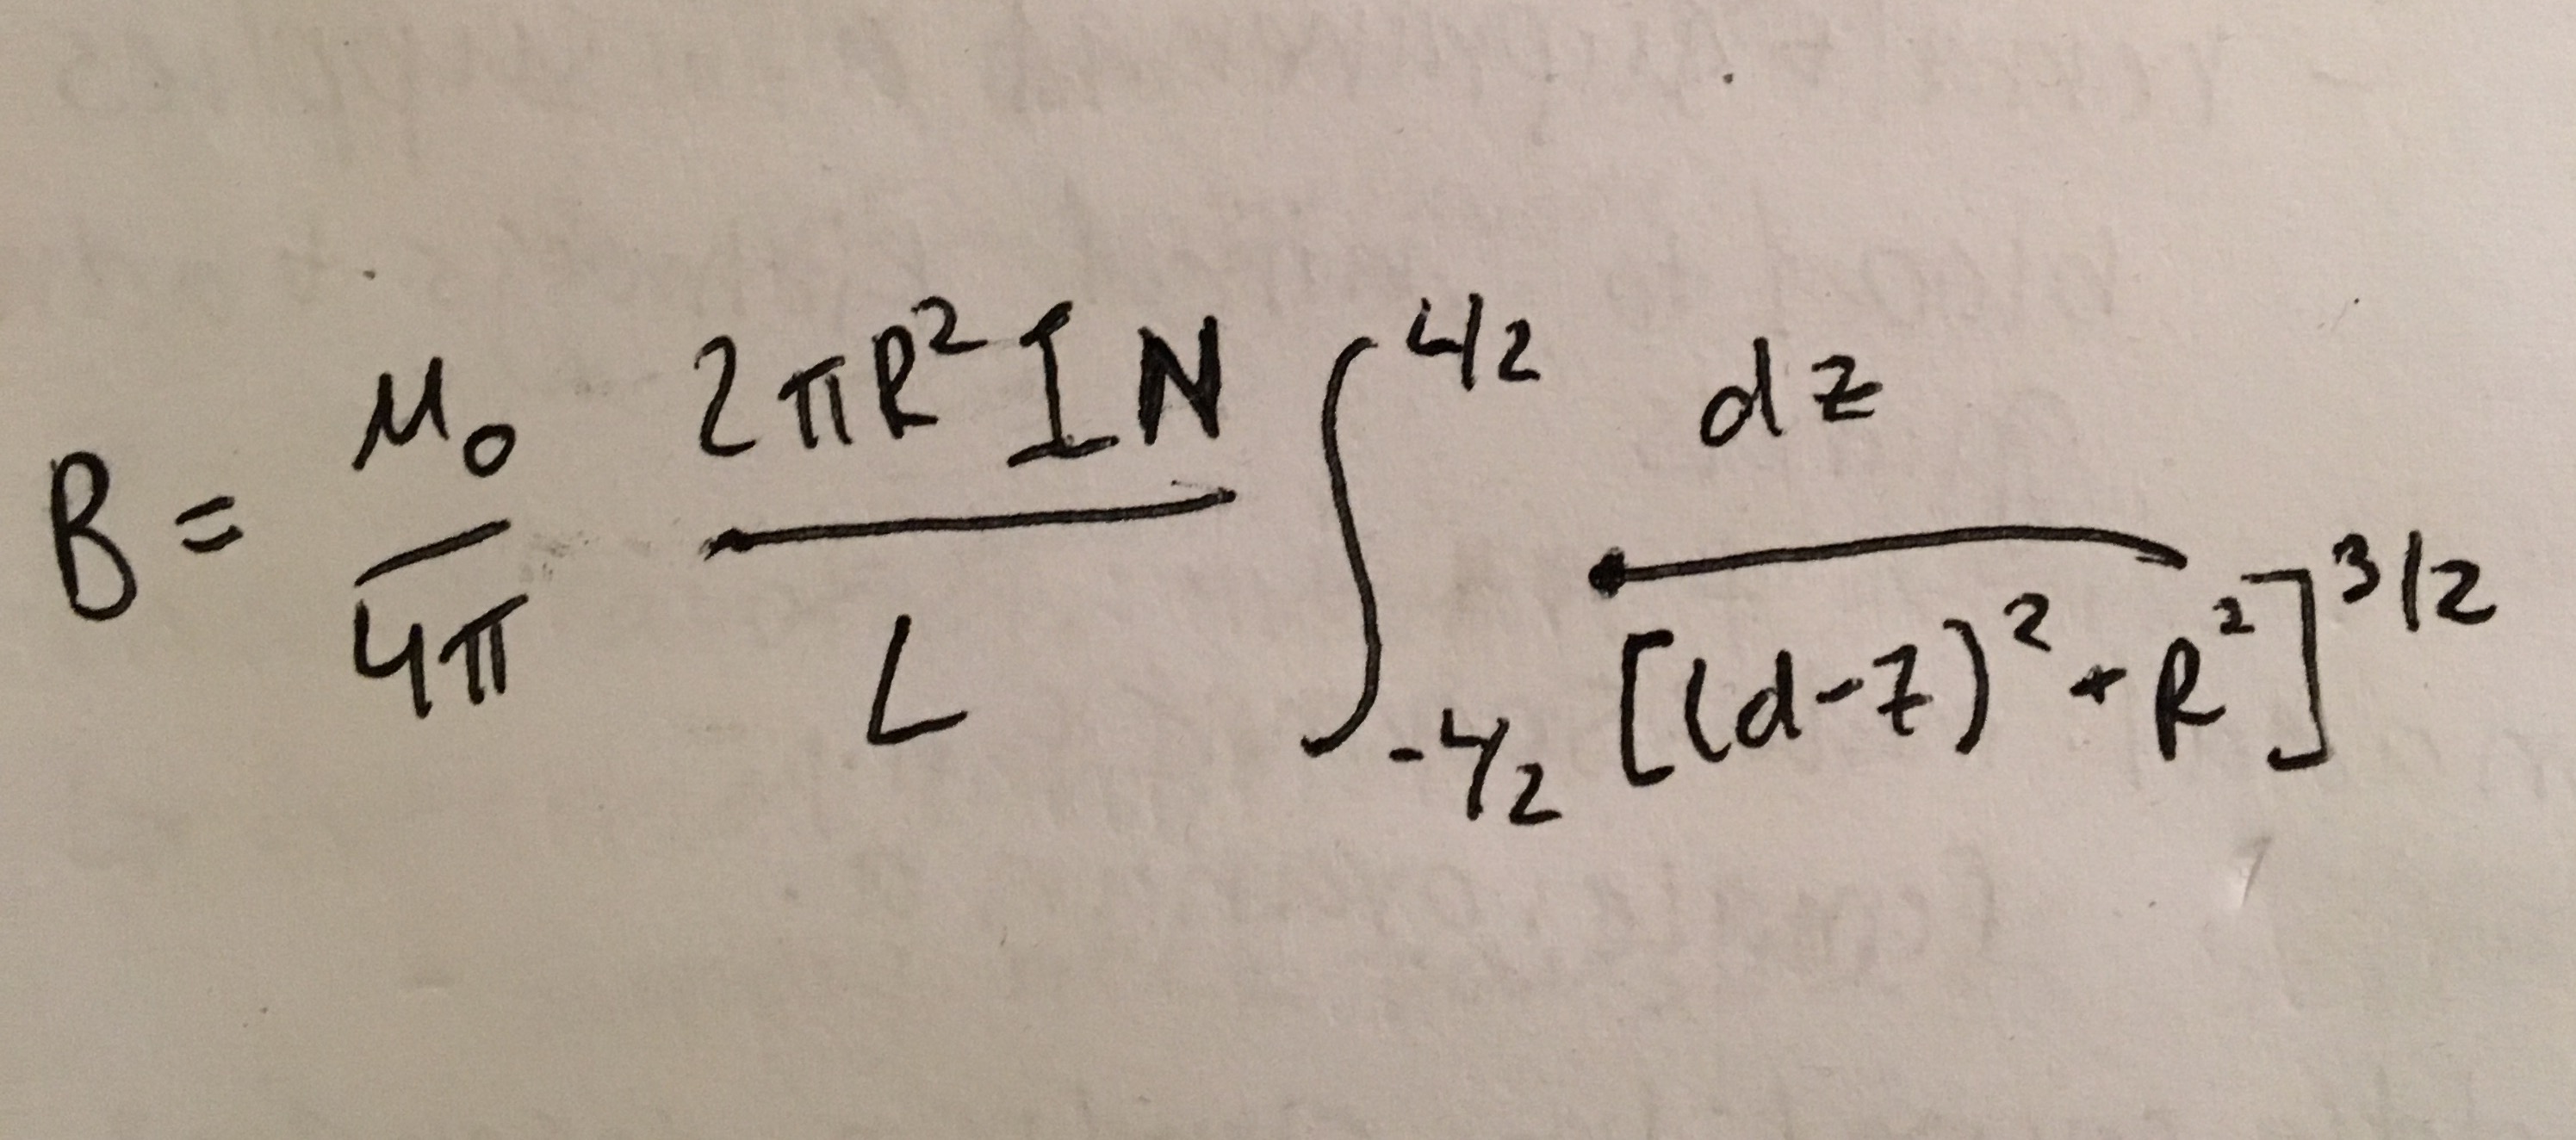 B = μ₀/4π 2πR²IN/L ∫_{-L/2}^{L/2} dz/[(d-z)²+R²]^{3/2}